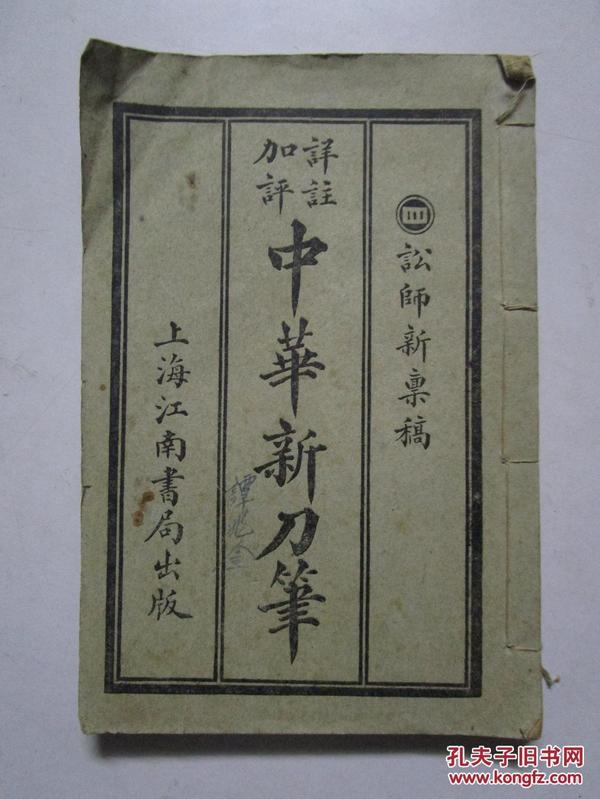 ㊂ 訟師新稟稿
詳註
加評
中華新刀筆
譚兆全
上海江南書局出版
孔夫子旧书网
www.kongfz.com